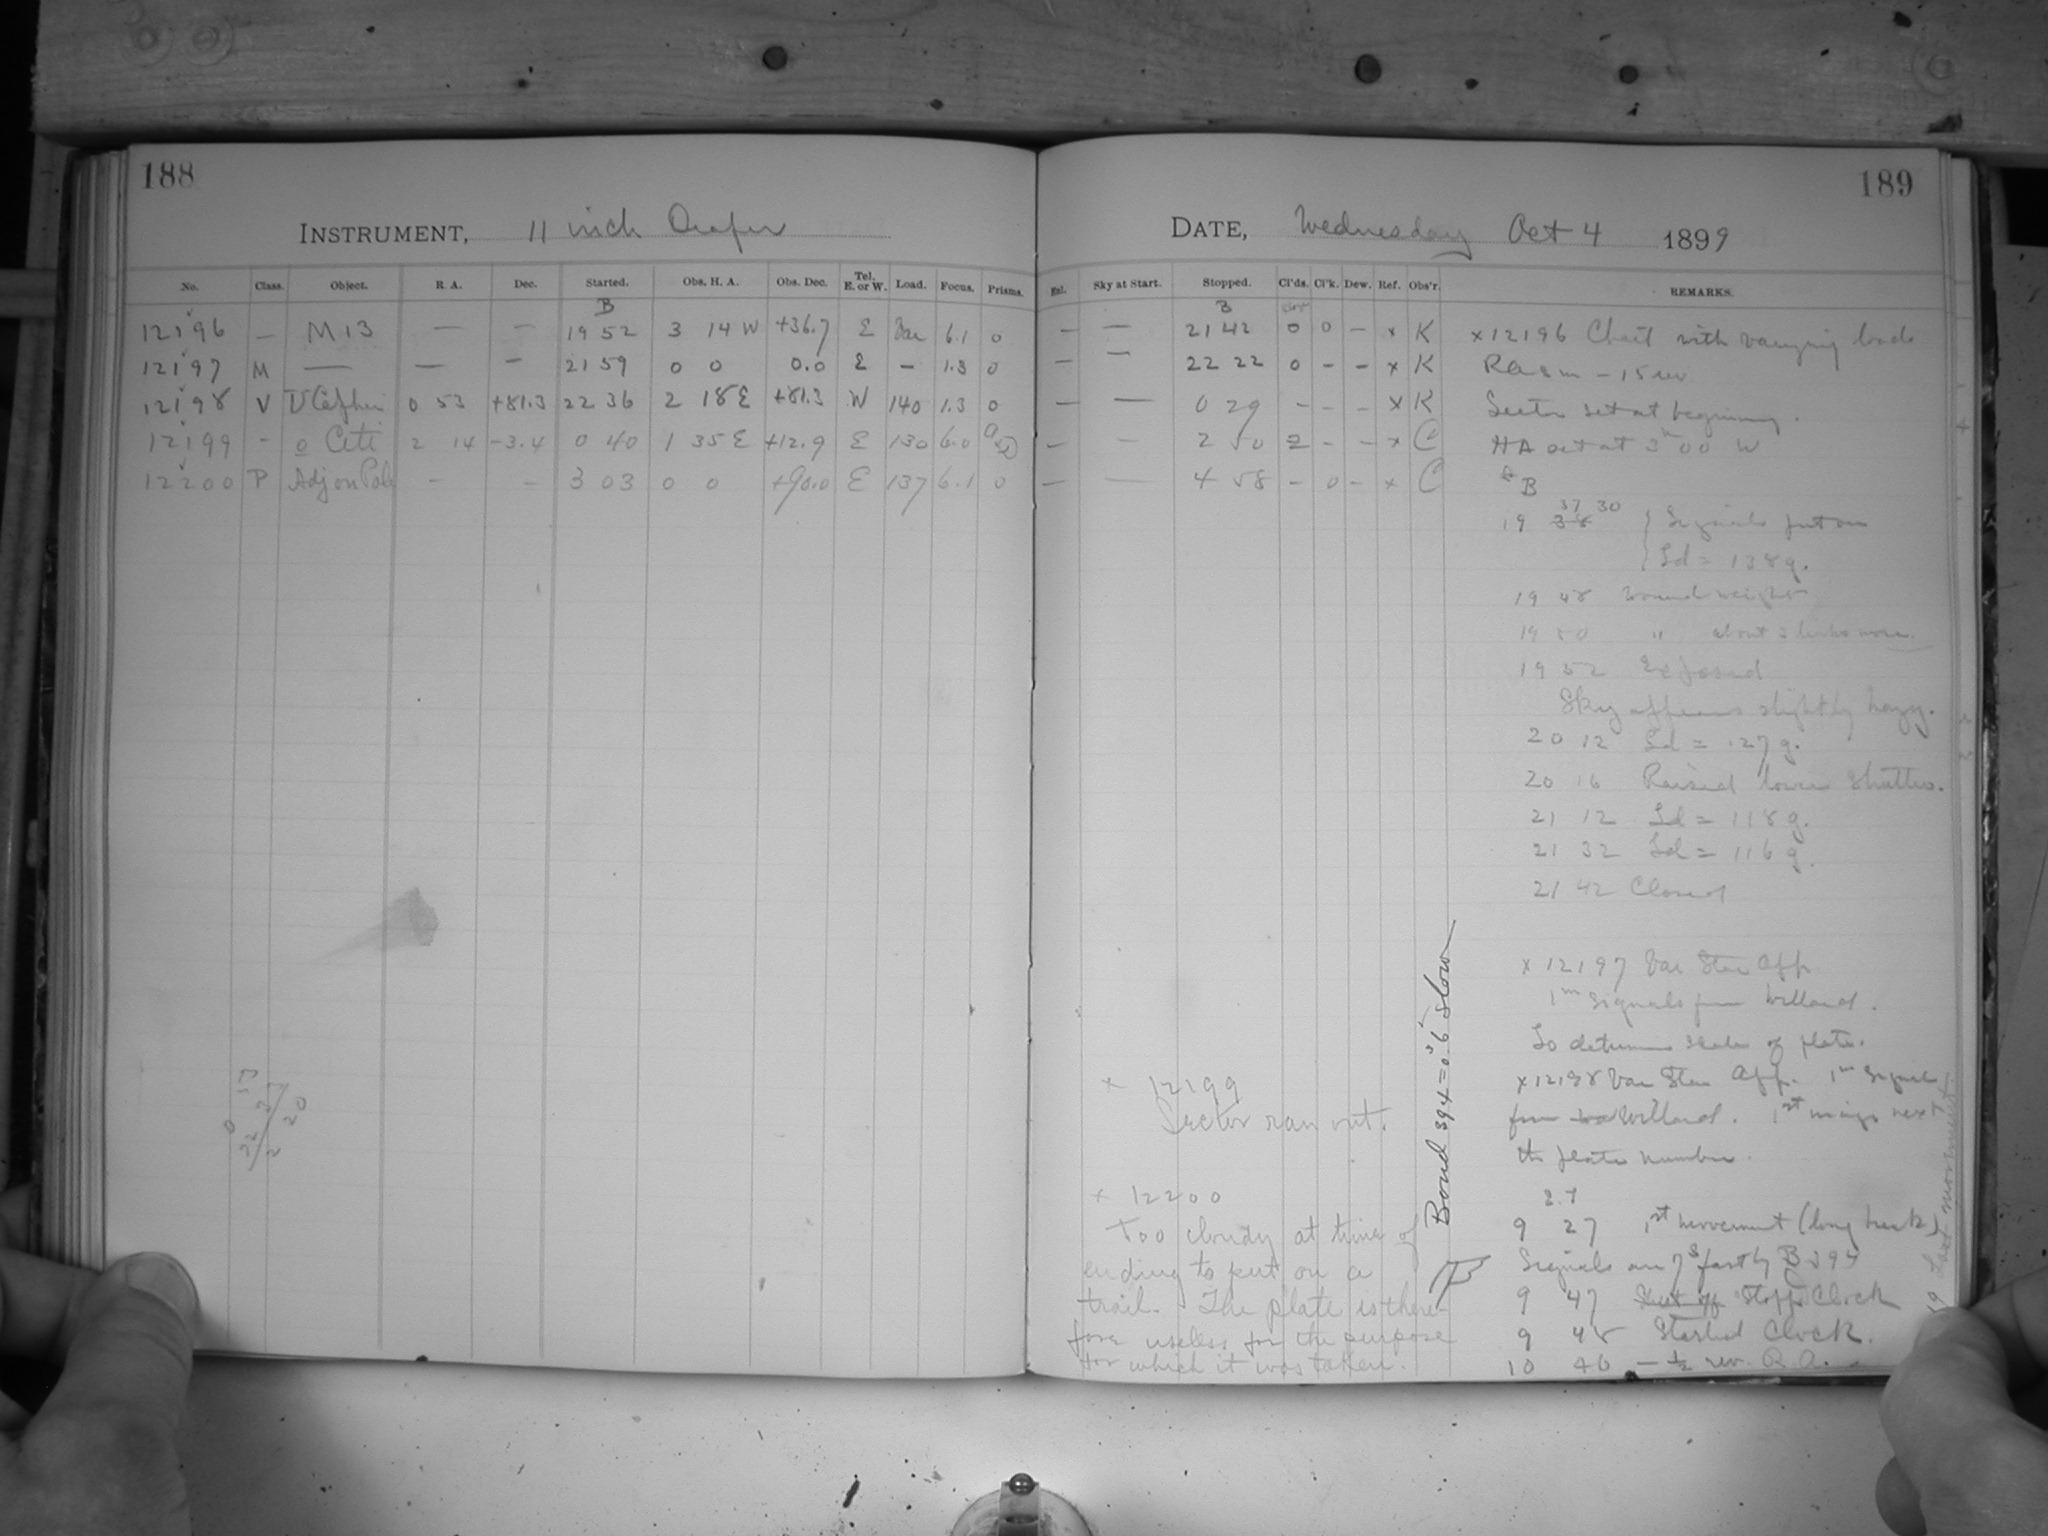 188
INSTRUMENT, 11 inch Draper
No. Class. Object. R. A. Dec. Started. Obs. H. A. Obs. Dec. Tel. E. or W. Load. Focus. Prisms.
B
12196 — M 13 — — 19 52 3 14 W +36.7 E Var 6.1 0
12197 M — — — 21 59 0 0 0.0 E — 1.3 0
12198 V U Cephei 0 53 +81.3 22 36 2 18 E +81.3 W 140 1.3 0
12199 - o Ceti 2 14 -3.4 0 40 1 35 E +12.9 E 130 6.0
12200 P Adj on Pole — — 3 03 0 0 +90.0 E 137 6.1 0
17
37
0 20
22
2
189
DATE, Wednesday Oct 4 1899
Enl. Sky at Start. Stopped. Cl'ds. Cl'k. Dew. Ref. Obs'r. REMARKS.
B
— — 21 42 0 0 – x K x 12196 Chart with varying loads
— — 22 22 0 - - x K RA 8 m - 15 rev
— — 0 29 - - - x K Sector set at beginning.
— — 2 50 2 - - x C HA set at 3h 00 W
— — 4 58 - 0 - x C
B
19 38 37 30 Signals put on
Ld = 138 g.
19 48 Wound weights
19 50 " about 2 links more.
19 52 Exposed
Sky appears slightly hazy.
20 12 Ld = 127 g.
20 16 Raised lower shutters.
21 12 Ld = 118 g.
21 32 Ld = 116 g.
21 42 Closed
x 12197 Var Star App
1m signals from Willard.
To determine scale of plate.
x 12198 Var Star App. 1m signals
from Willard. 1st image next
the plate number.
9 27 1st movement (long break)
Signals are 7s fast by B 394
9 47 Stopped Clock
9 48 Started Clock.
10 40 — ½ rev. R.A.
Last movement.
Bond 394 = 0s.6 slow
x 12199
Sector ran out.
x 12200
Too cloudy at time of
ending to put on a
trail. The plate is there-
fore useless for the purpose
for which it was taken.